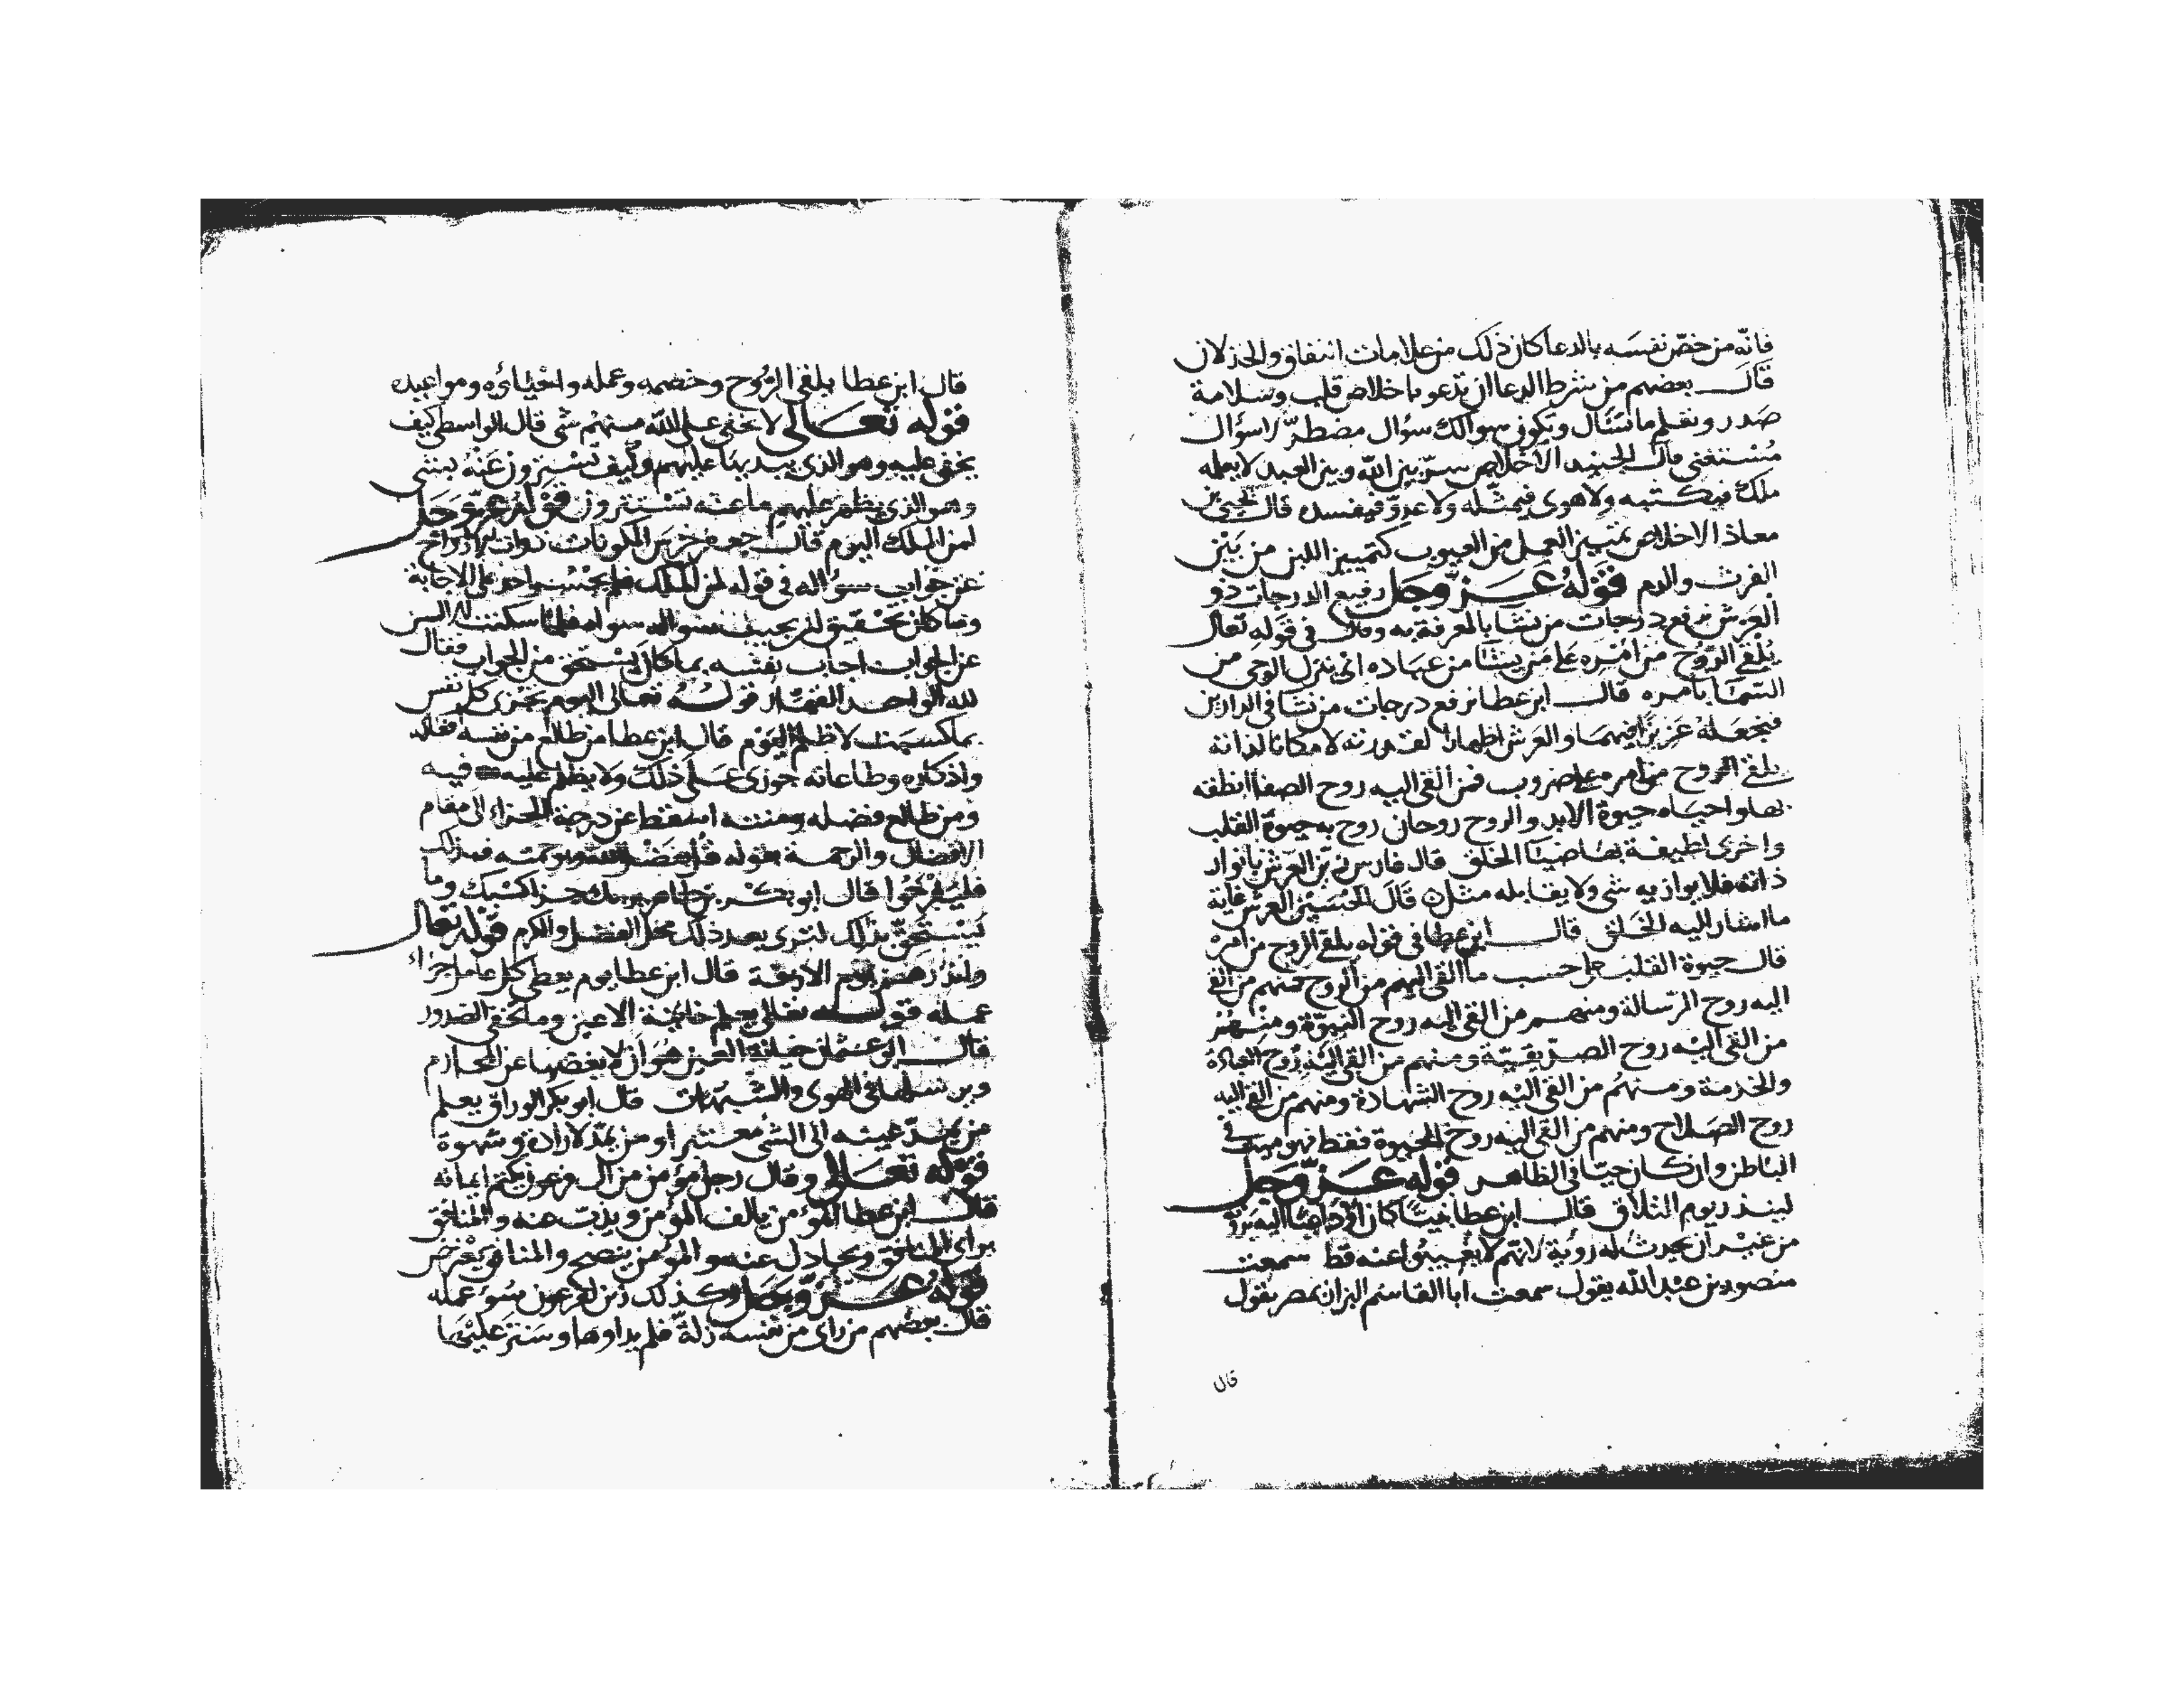 فانه من خصّ نفسه بالدعا كان ذلك من علامات النفاق والخذلان
قال بعضهم من شرط الدعا ان تدعو باخلاص قلب وسلامة
صدر وتعلم ما تسال وتكون سوالك سؤال مضطرّ لا سؤال
مستغنى قال الجنيد الاخلاص سرّ بين الله وبين العبد لا يعلمه
ملك فيكتبه ولا هوى فيمثّله ولا عدوّ فيفسده قال يحيى بن
معاذ الاخلاص تمييز العمل من العيوب كتمييز اللبن من بين
الفرث والدم قوله عزّ وجل رفيع الدرجات ذو
العرش نرفع درجات من نشا بالمعرفة به وقال فى قوله تعالى
يلقى الرّوح من امره على من يشا من عباده اى ينزل الوحى من
السّما بامره قال ابن عطا نرفع درجات من نشا فى الدارين
فيجعله عزيزا فيهما والعرش اظهارا لقدرته لا مكانا لذاته
يلقى الروح من امره على ضروب فمن القى اليه روح الصفا انطقه
بها واحياه حيوة الابد والروح روحان روح به حيوة القلب
واخرى لطيفة بها ضيا الخلق قال فارس زيّن العرش بانوار
ذاته فلا يوازيه شى ولا يقابله مثل قال الحسين العرش غاية
ما اشار اليه الخلق قال ابن عطا فى قوله يلقى الروح من امره
قال حيوة القلب على حسب ما القى اليهم من الروح فمنهم من القى
اليه روح الرّسالة ومنهم من القى اليه روح النبوّة ومنهم
من القى اليه روح الصدّيقيّة ومنهم من القى اليه روح
والخدمة ومنهم من القى اليه روح الشهادة ومنهم من القى اليه
روح الصلاح ومنهم من القى اليه روح الحيوة فقط فهو ميت فى
الباطن وان كان حيّا فى الظاهر قوله عزّ وجل
لينذر يوم التلاق قال ابن عطا
من غير ان يحدث له رؤية لانهم لا يغيبوا عنه قط سمعت
منصور بن عبد الله يقول سمعت ابا القاسم البزاز بمصر يقول
قال
قال ابن عطا يلقى الرّوح وخصمه وعمله واحيائه ومواعيده
قوله تعالى لا يخفى على الله منهم شى قال الواسطى كيف
يخفى عليه وهو الذى يبديها عليهم وكيف تستترون عنه بشى
وهو الذى يظهر عليهم ما عنه تستترون قوله عزّ وجل
لمن الملك اليوم قال جعفر خرس المكونات ذوات الارواح
عن جواب سؤاله فى قوله لمن الملك فلم يجسر احد على الاجابة
وما كان تحقيق لمن يجيب سواله سواه فلما سكنت السن
عن الجواب اجاب نفسه بما كان يستحق من الجواب فقال
لله الواحد القهّار قوله تعالى اليوم تجزى كل نفس
بما كسبت لا ظلم اليوم قال ابن عطا من طالع من نفسه افعاله
واذكاره وطاعاته جوزى على ذلك ولا يظلم عليه فيه
ومن طالع فضله ومنته اسقط عن درجة الجزاء الى مقام
الافضال والرحمة بقوله قل بفضل الله وبرحمته فبذلك
فليفرحوا قال ابو بكر بن طاهر يريك جزا كسبك وما
تستحق بذلك لترى بعد ذلك محل الفضل والكرم قوله تعالى
وانذرهم يوم الازفة قال ابن عطا يوم يعطى كل عامل جزاء
عمله قوله تعالى يعلم خاينة الاعين وما تخفى الصدور
قال ابو عثمان خيانة العين هو ان لا يغضها عن المحارم
ويرسلها فى الهوى والشبهات قال ابو بكر الوراق يعلم
من يمدّ عينه الى الشى معتبرا ومن يمدّ لارادة وشهوة
قوله تعالى وقال رجل مؤمن من ال فرعون يكتم ايمانه
قال ابن عطا المؤمن يالف المؤمن ويذبّ عنه والمنافق
يوالى المنافق ويجادل عنه والمؤمن ينصح والمنافق
قوله عزّ وجل وكذلك زين لفرعون سوء عمله
قال بعضهم من راى من نفسه زلة فلم يداوها وستر عليها